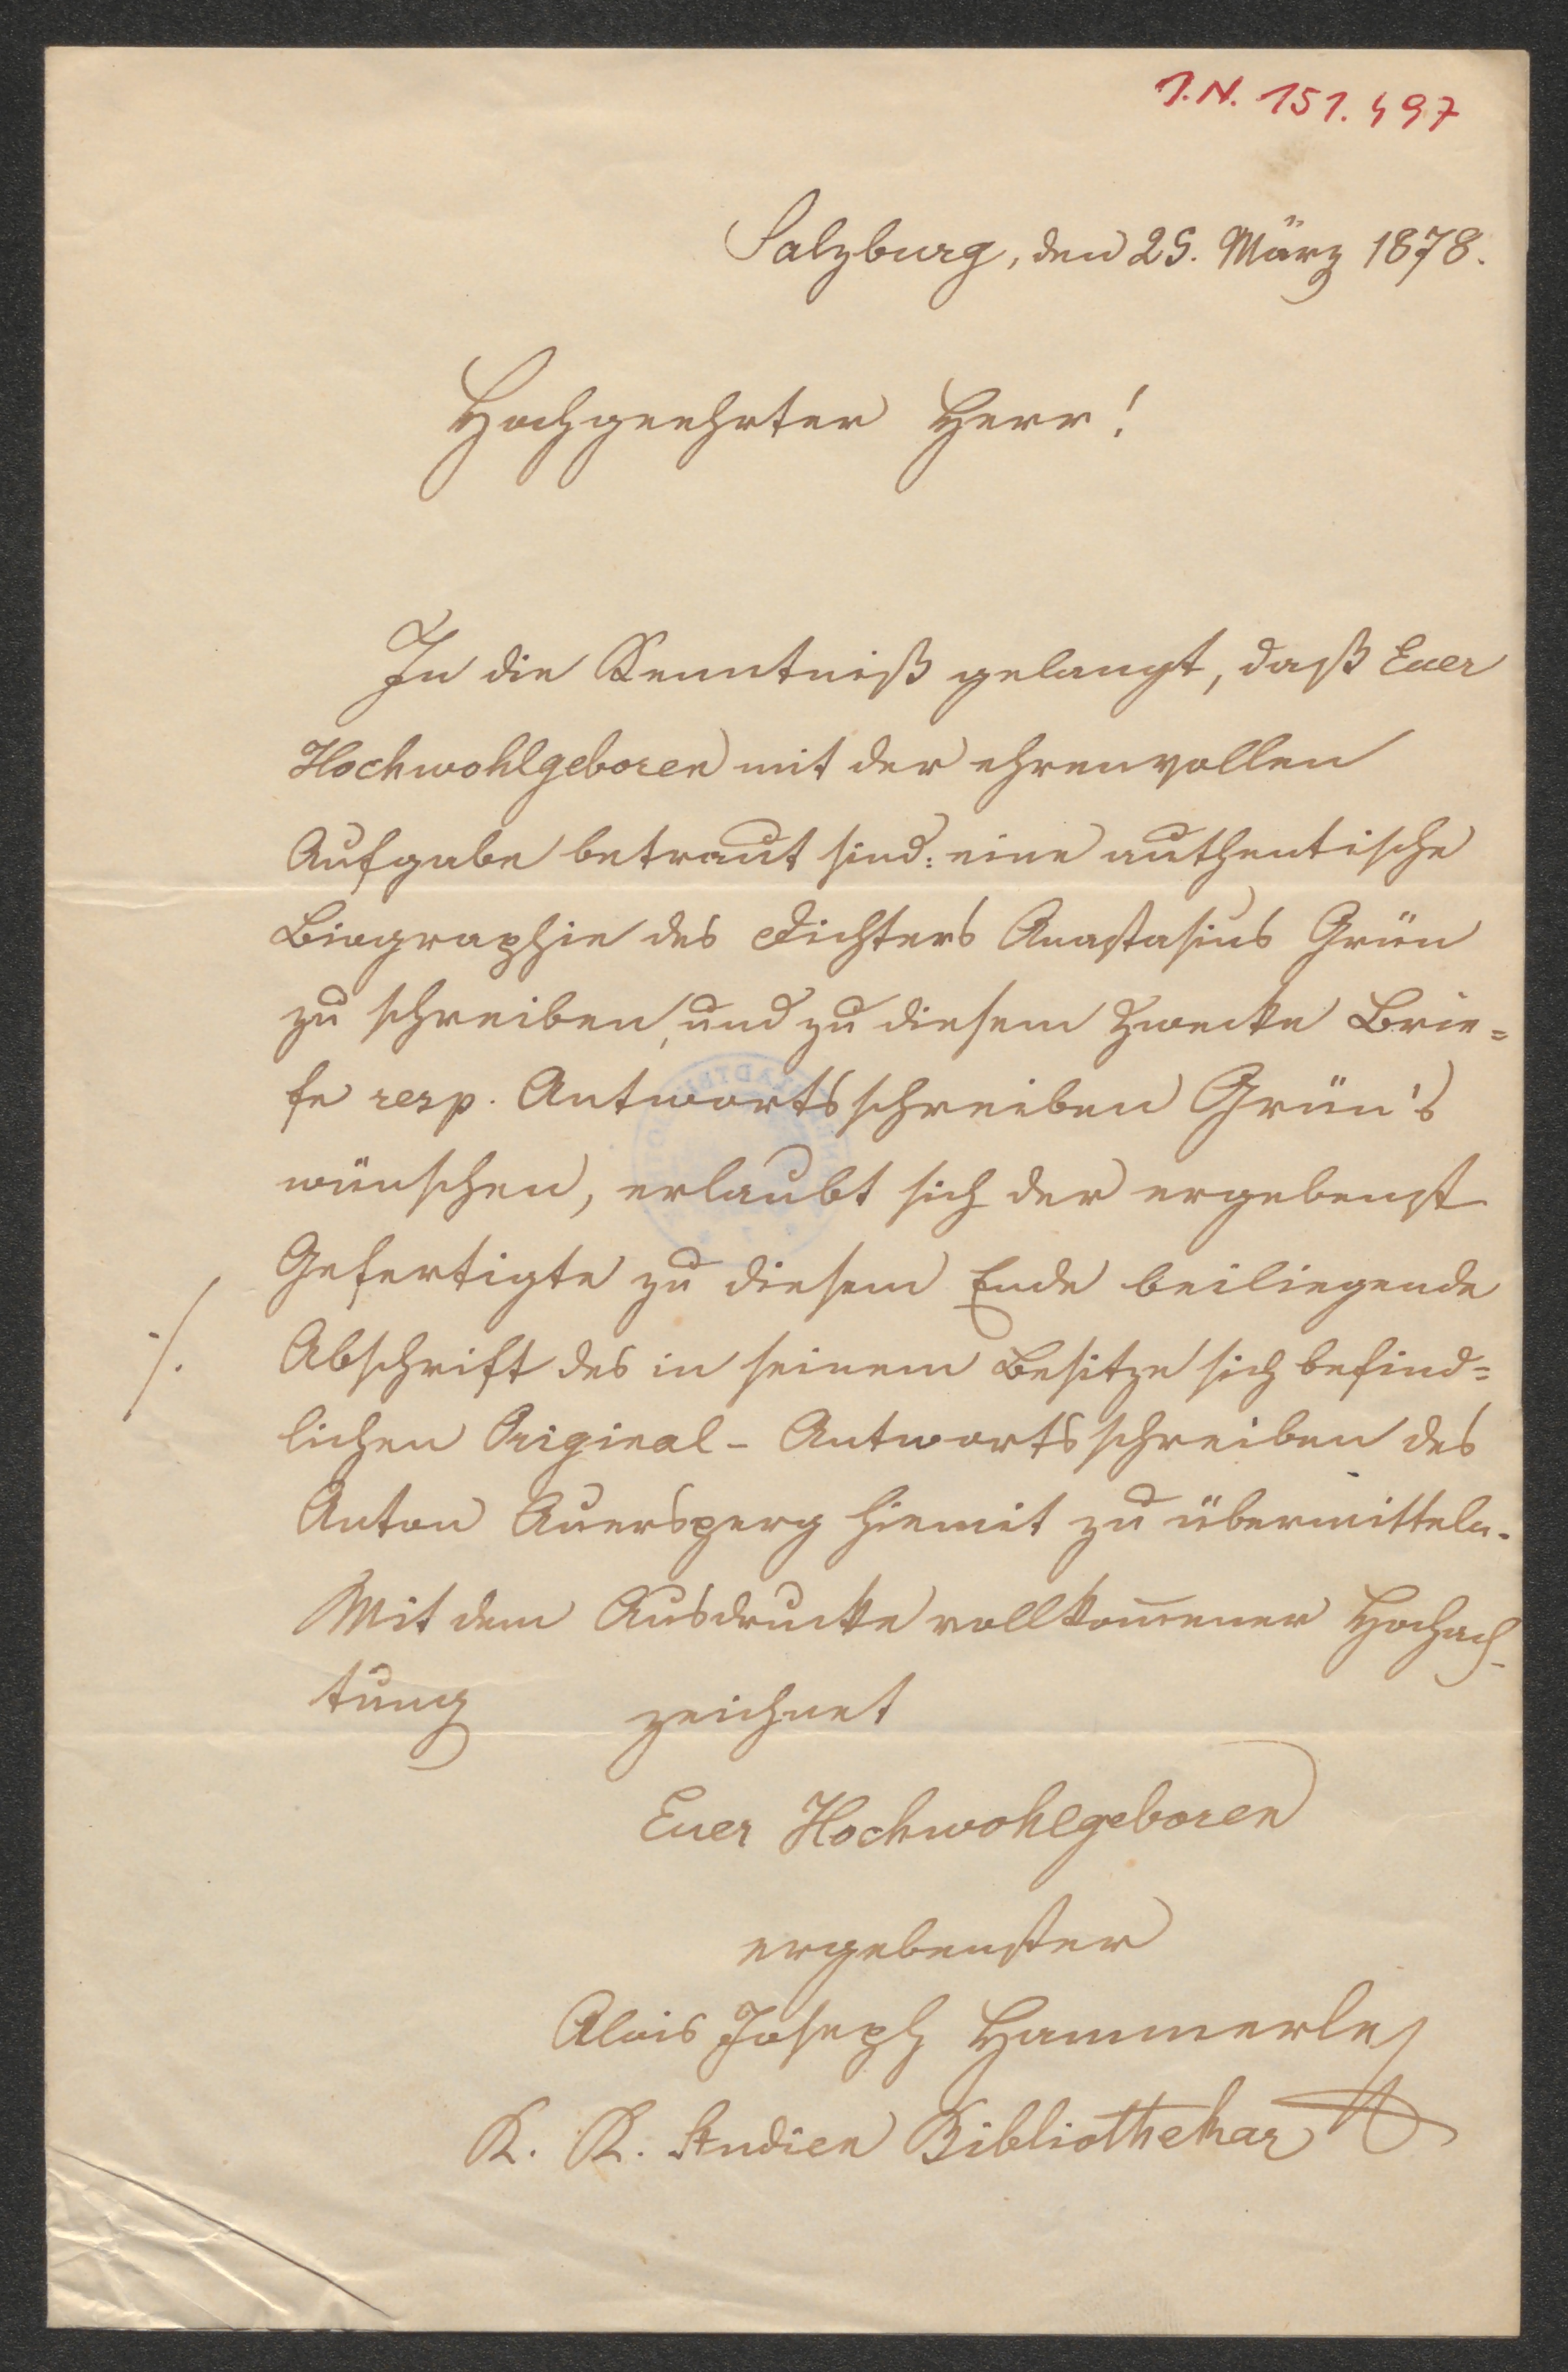 J.N. 151.497
Salzburg, den 25. März 1878.
Hochgeehrter Herr!
In die Kenntniß gelangt, daß Euer
Hochwohlgeboren mit der ehrenvollen
Aufgabe betraut sind: eine authentische
Biographie des Dichters Anastasius Grün
zu schreiben, und zu diesem Zwecke Brie=
fe resp. Antwortsschreiben Grün's
wünschen, erlaubt sich der ergebenst
Gefertigte zu diesem Ende beiliegende
./. Abschrift des in seinem Besitze sich befind=
lichen Original-Antwortsschreiben des
Anton Auersperg hiemit zu übermitteln.
Mit dem Ausdrucke vollkom̅ener Hochach-
tung zeichnet
Euer Hochwohlgeboren
ergebenster
Alois Joseph Hammerle
K. K. Studien Bibliothekar